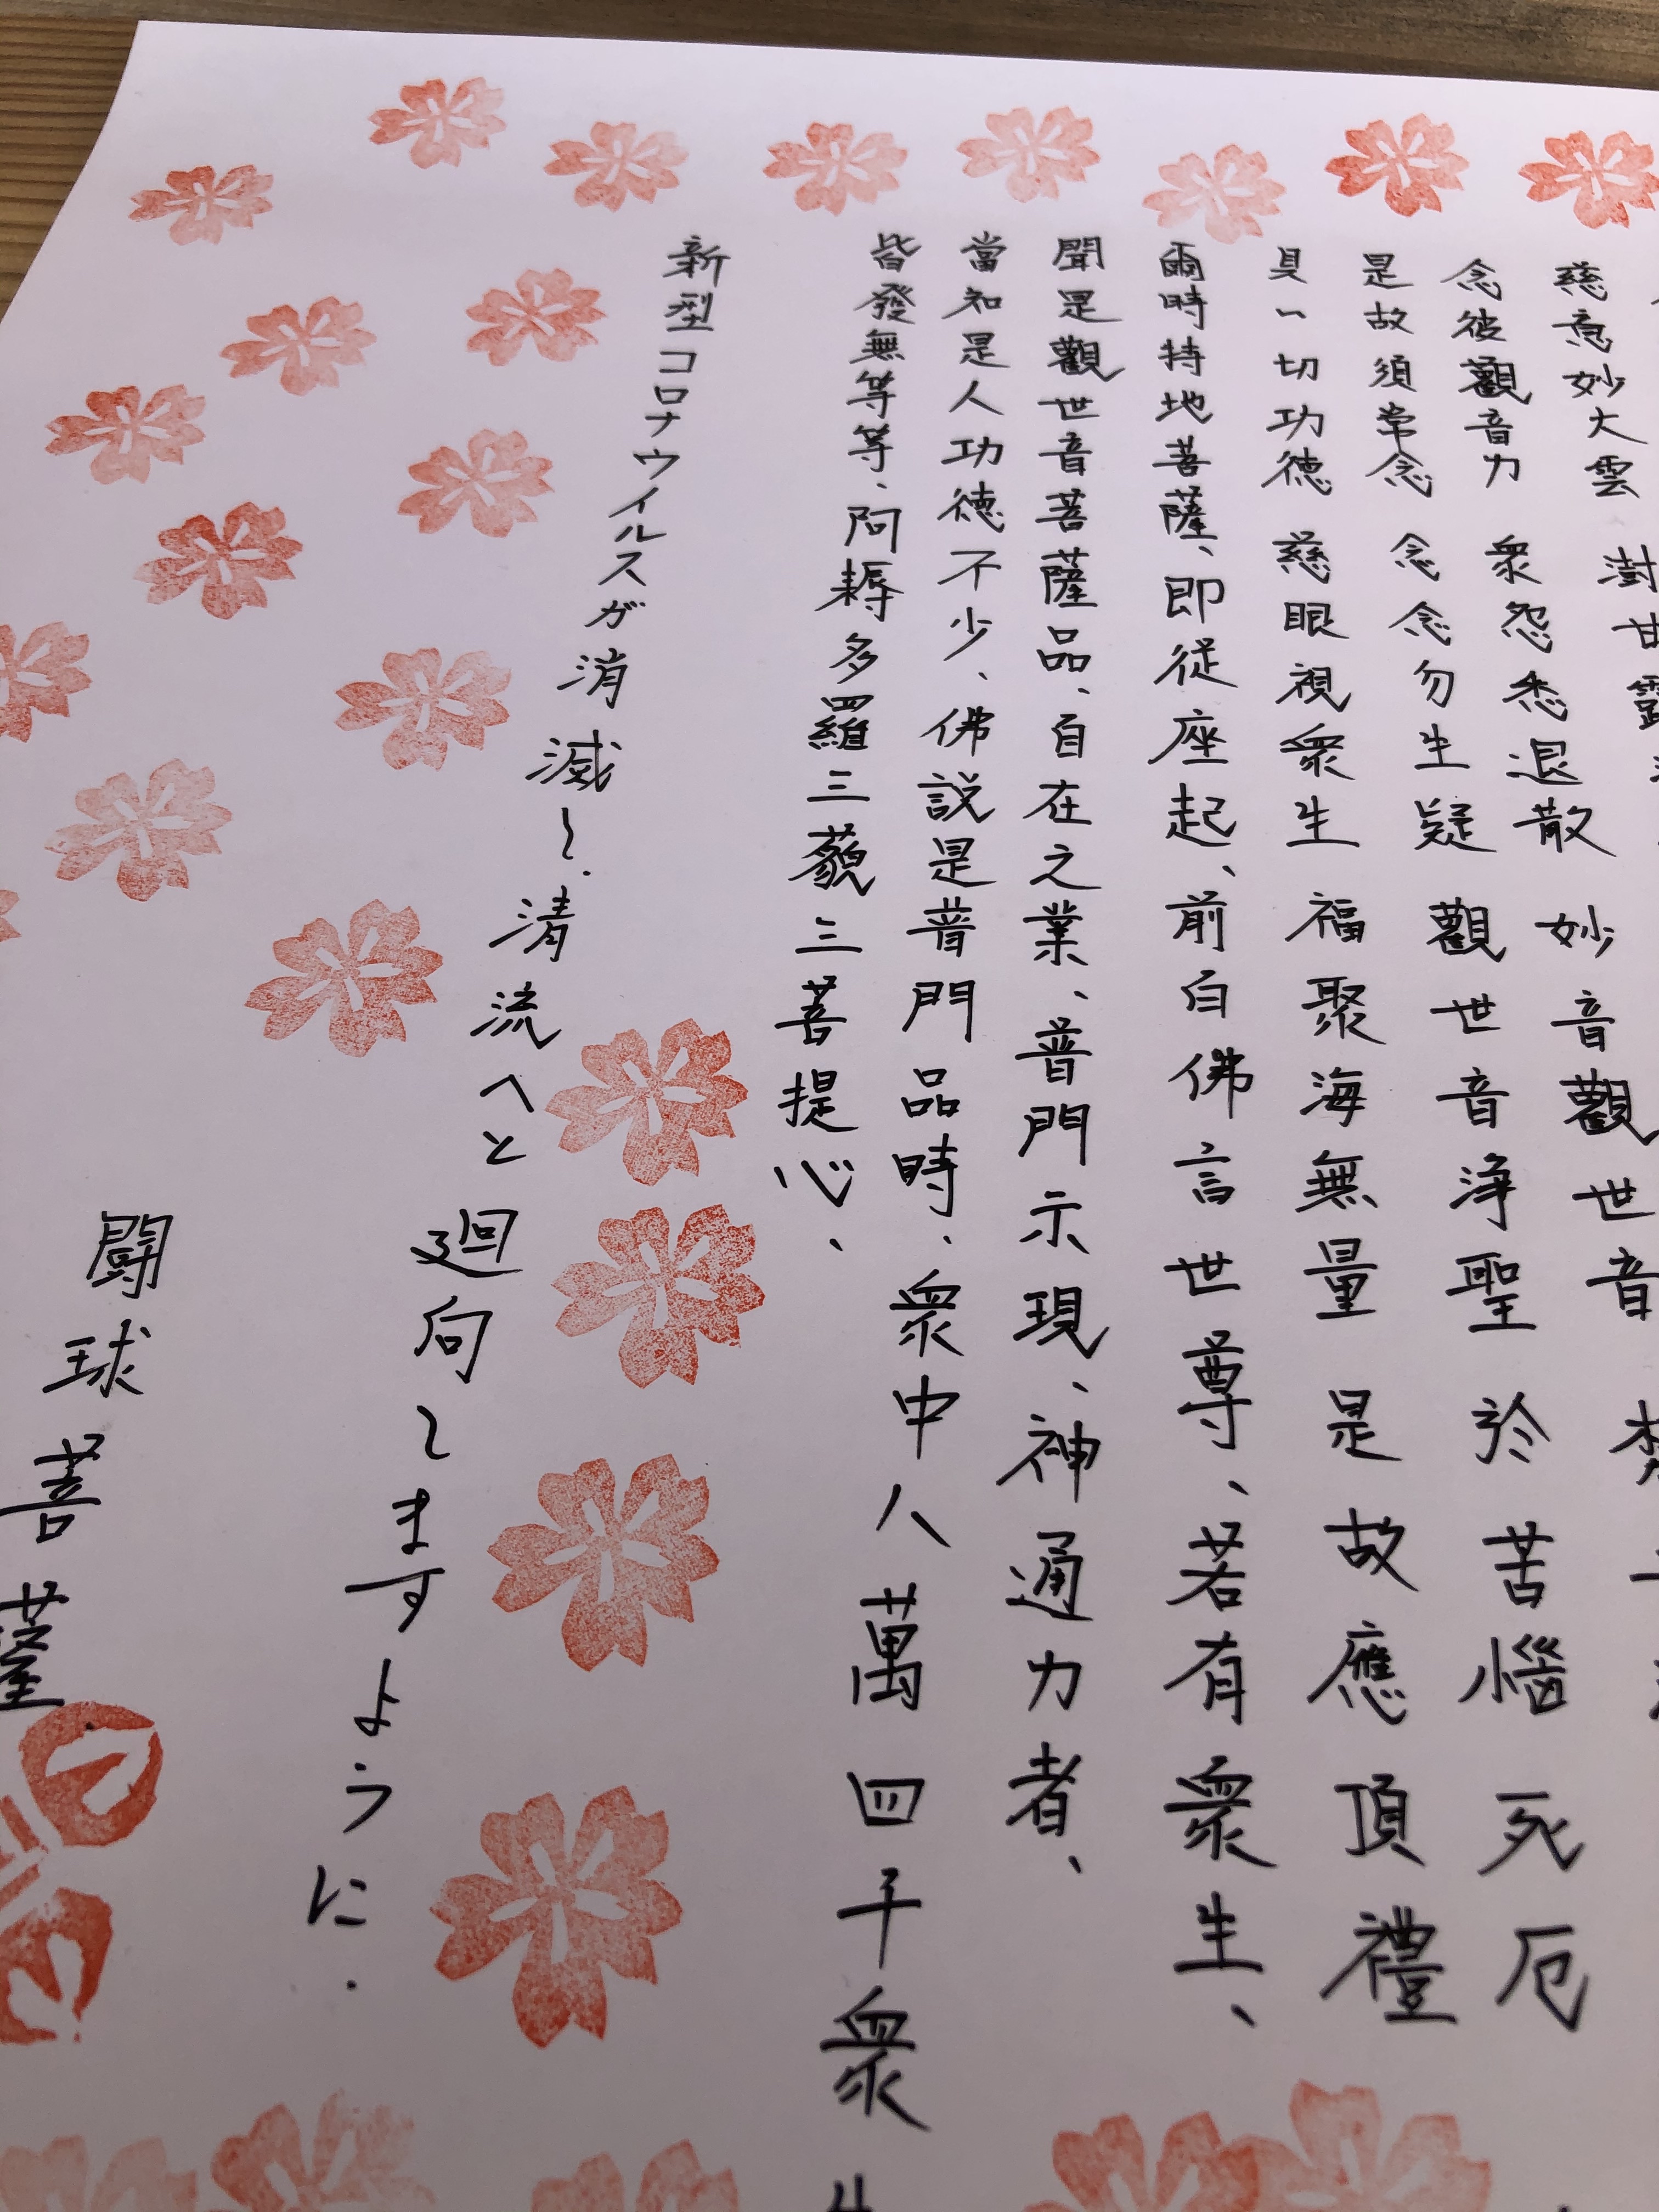 慈意妙大雲 澍甘露
念彼觀音力 衆怨悉退散 妙音觀世音
是故須常念 念念勿生疑 觀世音浄聖 於苦惱死厄
具一切功徳 慈眼視衆生 福聚海無量 是故應頂禮
爾時持地菩薩、即従座起、前白佛言世尊、若有衆生、
聞是觀世音菩薩品、自在之業、普門示現、神通力者、
當知是人功徳不少、佛説是普門品時、衆中八萬四千衆
皆發無等等、阿耨多羅三藐三菩提心、
新型コロナウイルスが消滅し、清流へと廻向しますように.
闘球菩薩